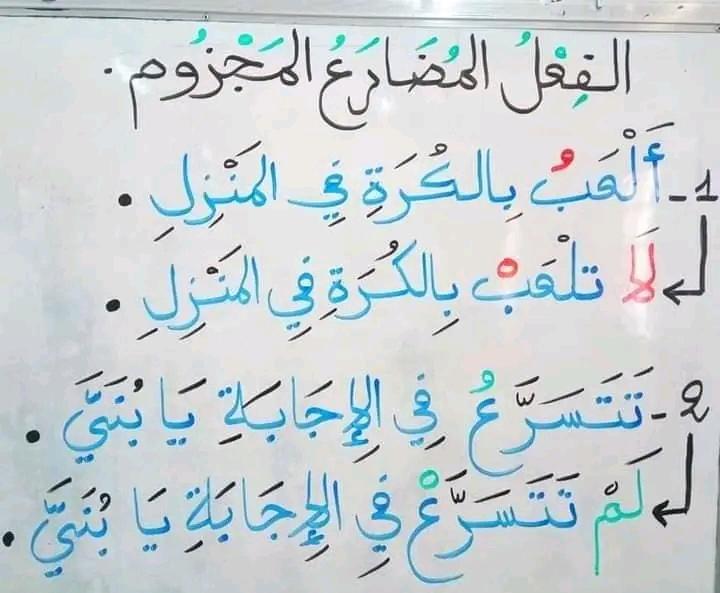 الفِعْلُ المُضَارَعُ المَجْزُوم.
1- أَلْعَبُ بِالكُرَةِ فِي المَنْزِلِ.
لَا تلْعَبْ بِالكُرَةِ فِي المَنْزِلِ.
2- تَتَسَرَّعُ فِي الإِجَابَةِ يَا بُنَيَّ.
لَمْ تَتَسَرَّعْ فِي الإِجَابَةِ يَا بُنَيَّ.